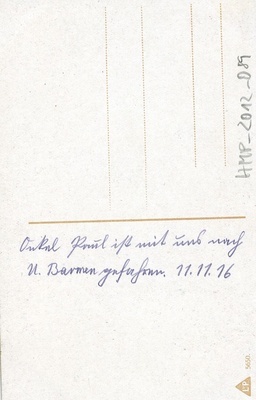 Onkel Paul ist mit uns nach
U. Barmen gefahren. 11.11.16
HMP_2012_089